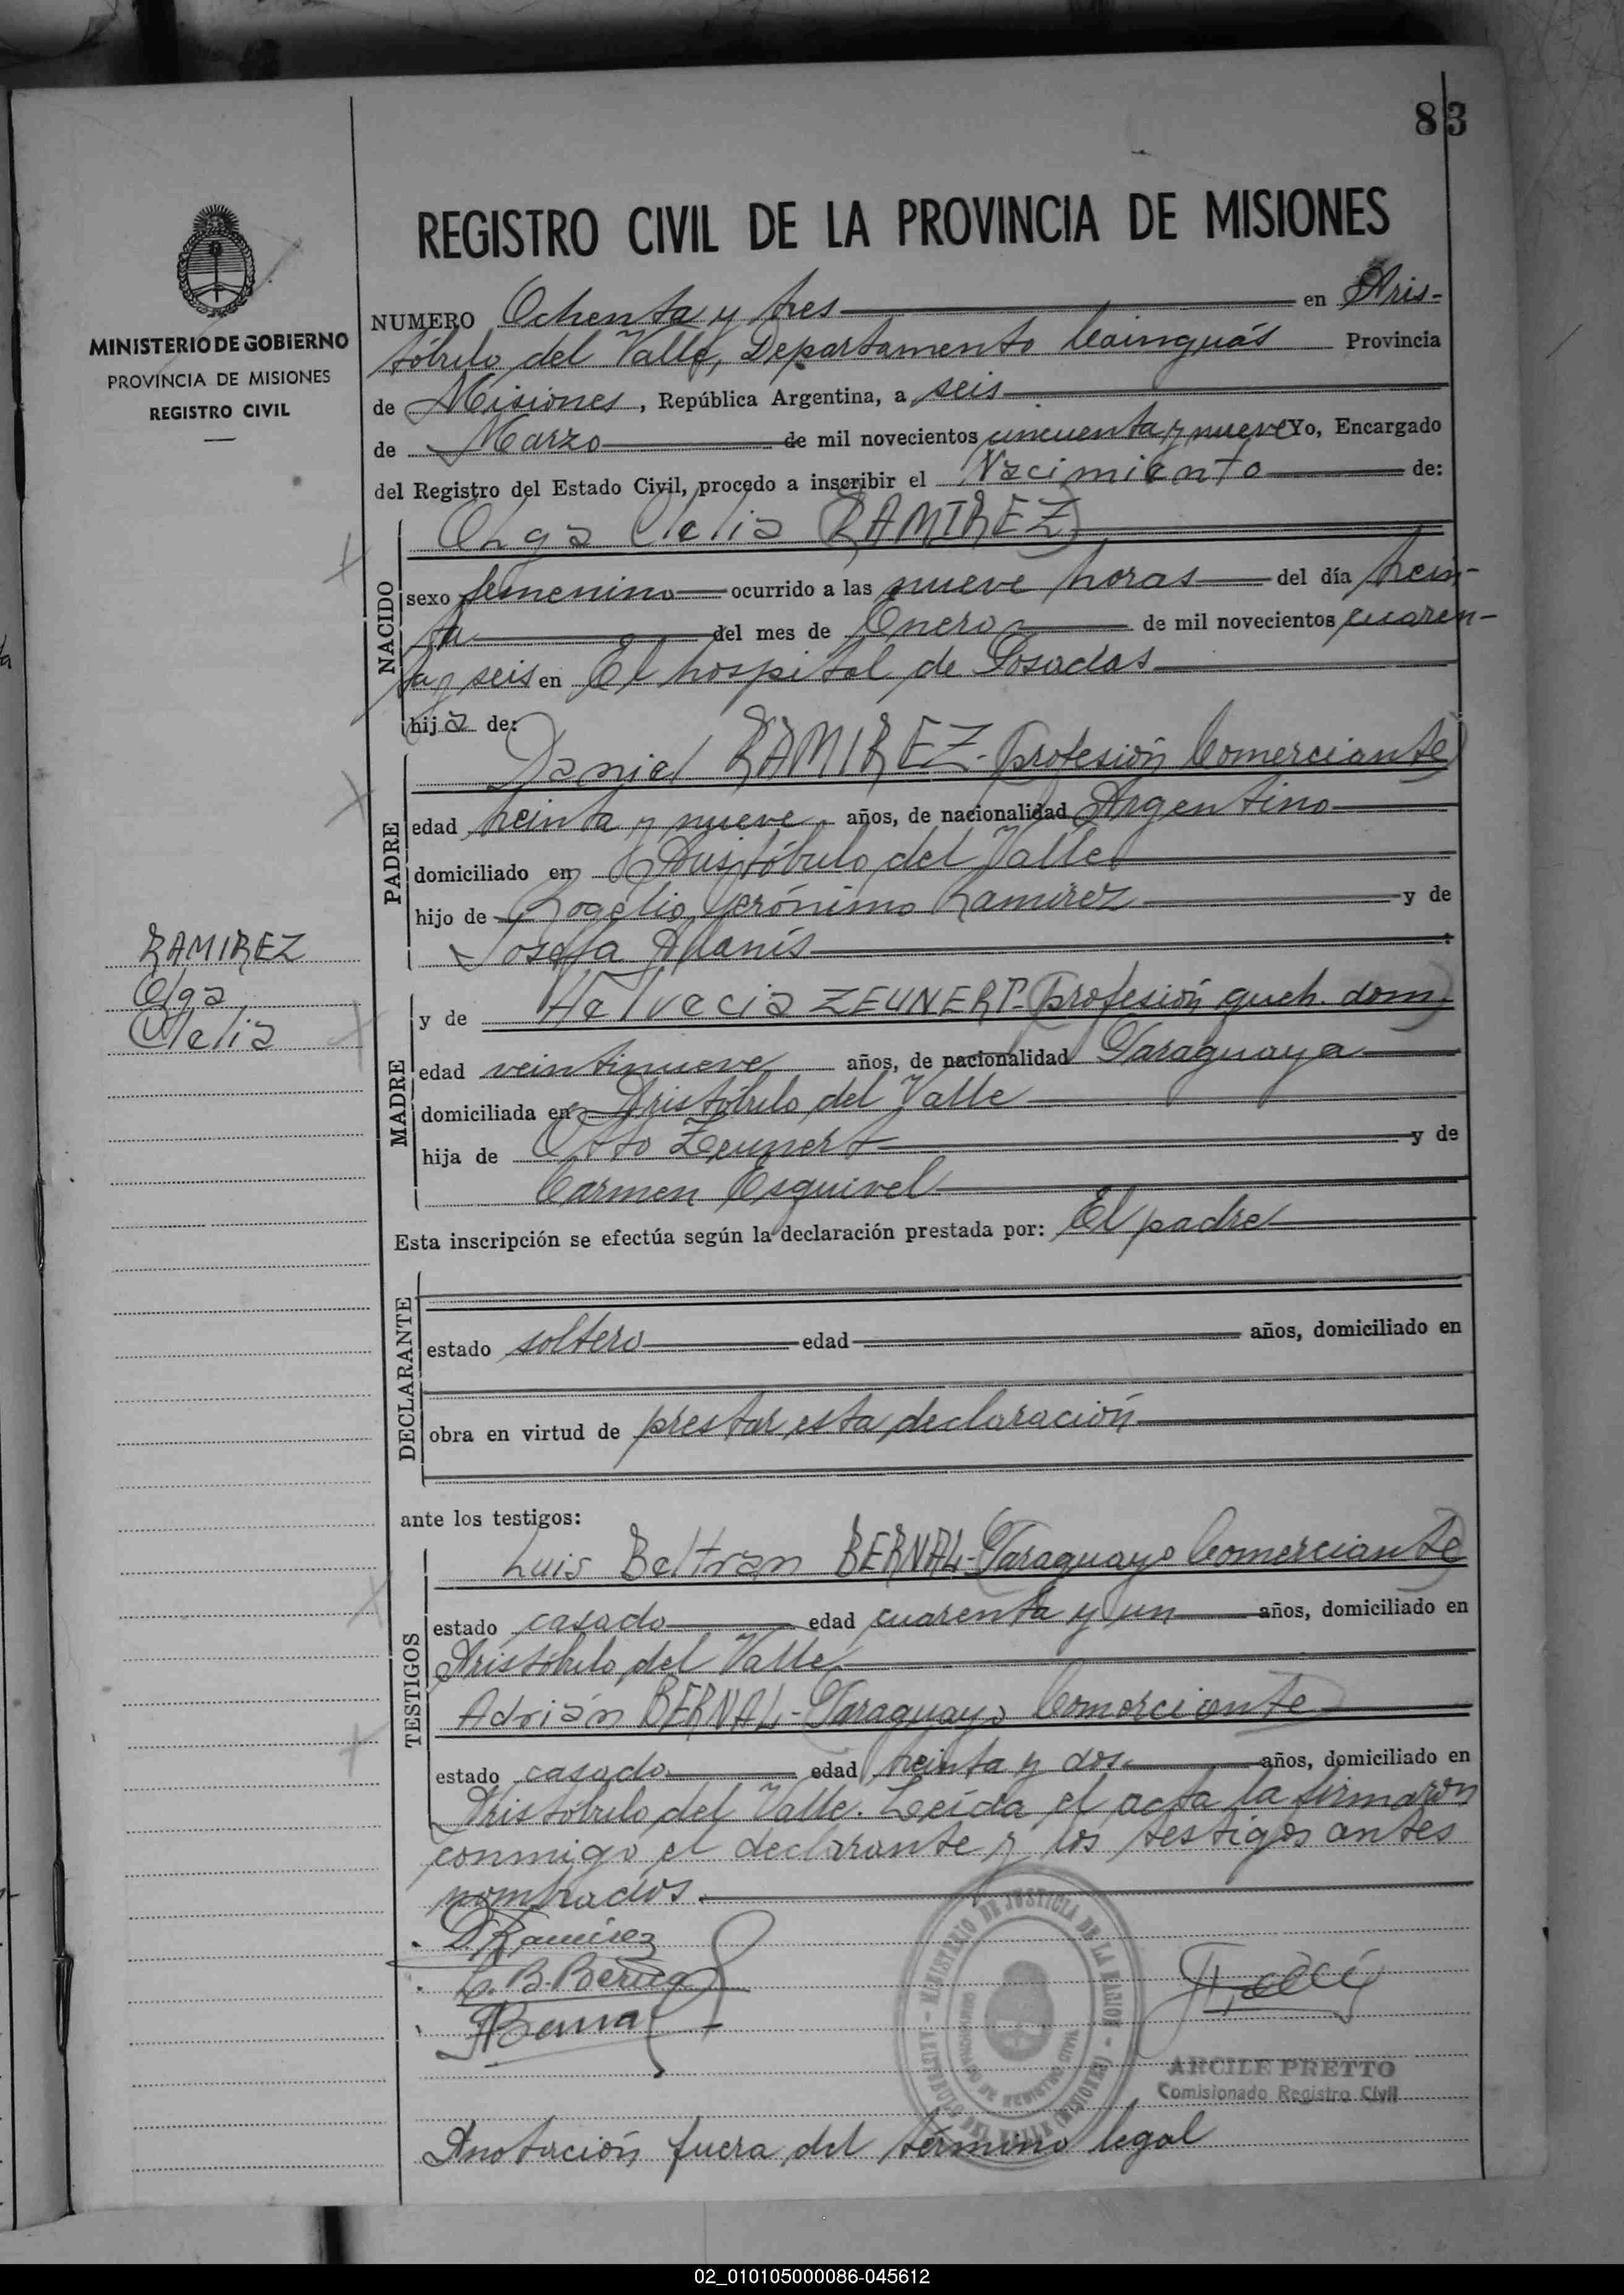 83
REGISTRO CIVIL DE LA PROVINCIA DE MISIONES
MINISTERIO DE GOBIERNO
PROVINCIA DE MISIONES
REGISTRO CIVIL
NUMERO Ochenta y tres en Aris-
tóbulo del Valle, Departamento Cainguás Provincia
de Misiones, República Argentina, a seis
de Marzo de mil novecientos cincuenta y nueve Yo, Encargado
del Registro del Estado Civil, procedo a inscribir el Nacimiento de:
NACIDO
Olga Clelia (RAMIREZ)
sexo femenino ocurrido a las nueve horas del día trein-
ta del mes de Enero de mil novecientos cuaren-
ta y seis en El hospital de Posadas
hija de:
PADRE
Daniel RAMIREZ - (profesión Comerciante)
edad treinta y nueve años, de nacionalidad Argentino
domiciliado en Aristóbulo del Valle
hijo de Rogelio Gerónimo Ramirez y de
Josefa Alanís
RAMIREZ
Olga
Clelia
MADRE
y de Helvecia ZEUNERT - (profesión queh. dom.)
edad veintinueve años, de nacionalidad Paraguaya
domiciliada en Aristóbulo del Valle
hija de Otto Zeunert y de
Carmen Esquivel
Esta inscripción se efectúa según la declaración prestada por: El padre
DECLARANTE
estado soltero edad años, domiciliado en
obra en virtud de prestar esta declaración
ante los testigos:
TESTIGOS
Luis Beltran BERNAL - (Paraguayo Comerciante)
estado casado edad cuarenta y un años, domiciliado en
Aristóbulo del Valle
Adrián BERNAL - (Paraguayo Comerciante)
estado casado edad treinta y dos años, domiciliado en
Aristóbulo del Valle. Leída el acta la firmaron
conmigo el declarante y los testigos antes
nombrados.
D. Ramirez
L. B. Bernal
A Bernal
MINISTERIO DE JUSTICIA DE LA NACION - ARISTOBULO DEL VALLE (MISIONES)
ARCILE PRETTO
Comisionado Registro Civil
Anotación fuera del término legal
02_010105000086-045612